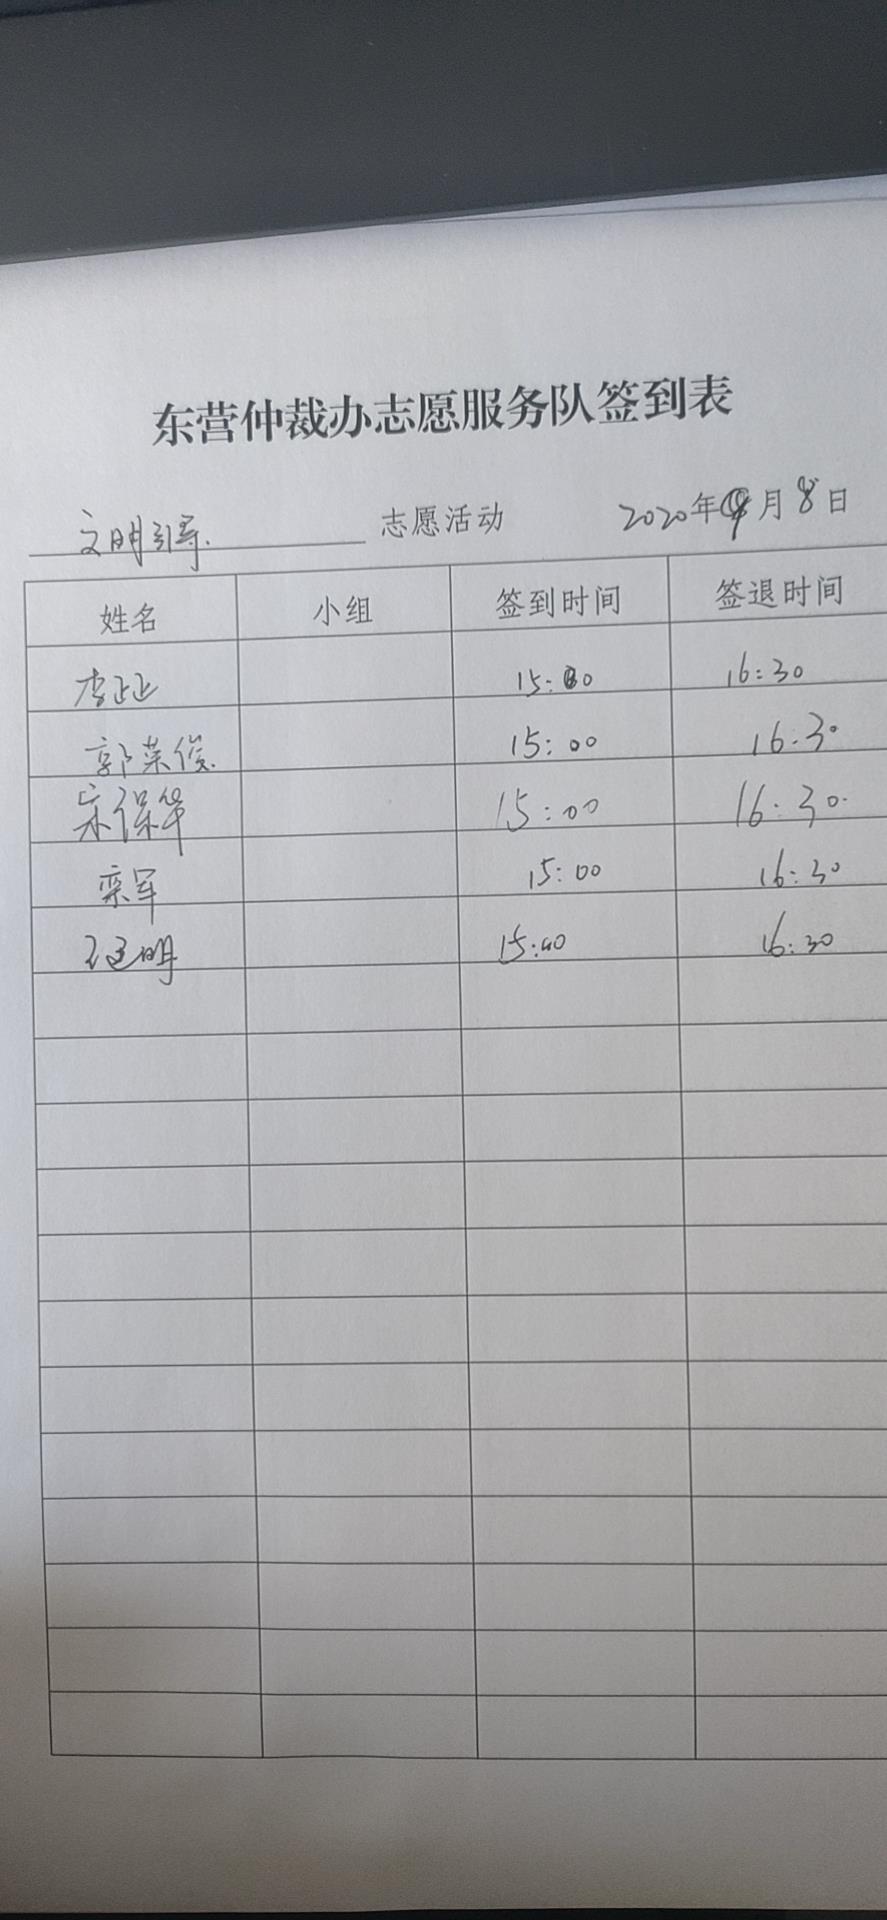 东营仲裁办志愿服务队签到表
文明引导. 志愿活动 2020年9月8日
姓名 小组 签到时间 签退时间
15:00 16:30
郭荣俊. 15:00 16:30
宋保华 15:00 16:30.
栾军 15:00 16:30
王建明 15:00 16:30